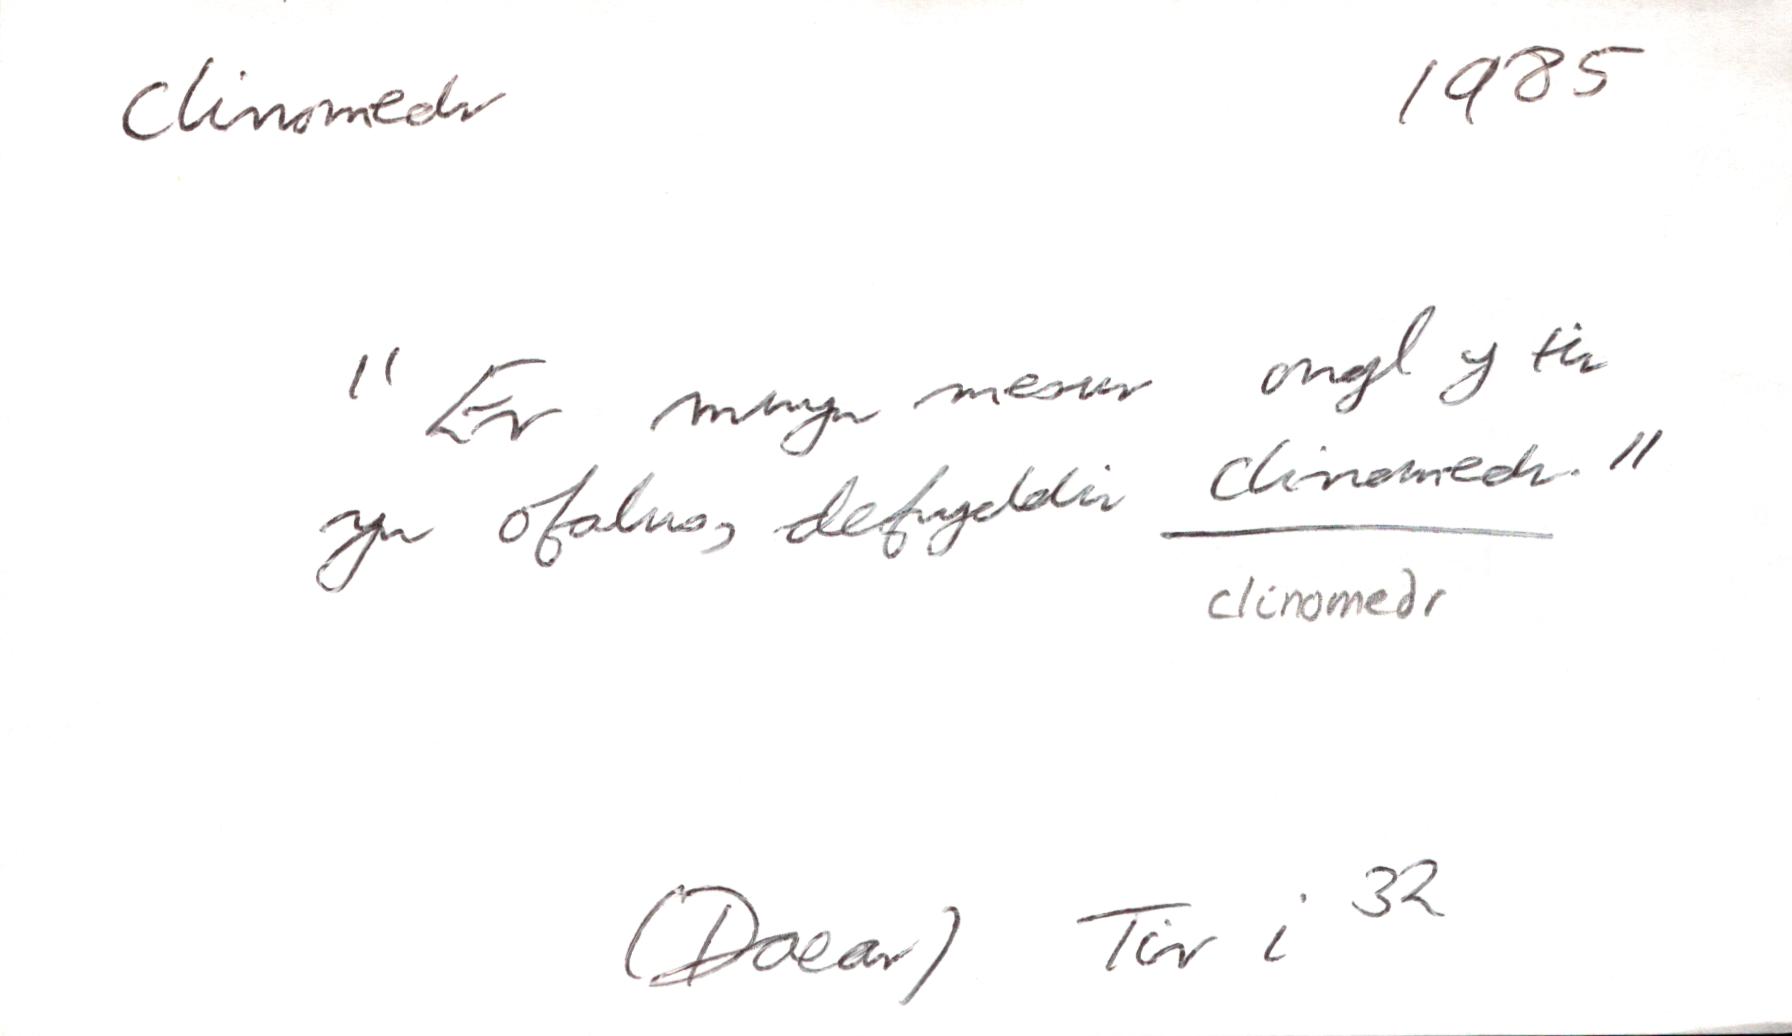 clinomedr 1985
"Er mwyn mesur ongl y tir
yn ofalus, defnyddir clinomedr."
clinomedr
(Daear) Tir i 32